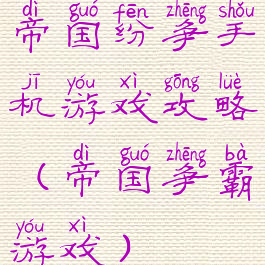 dì guó fēn zhēng shǒu
帝国纷争手
jī yóu xì gōng lüè
机游戏攻略
dì guó zhēng bà
（帝国争霸
yóu xì
游戏）